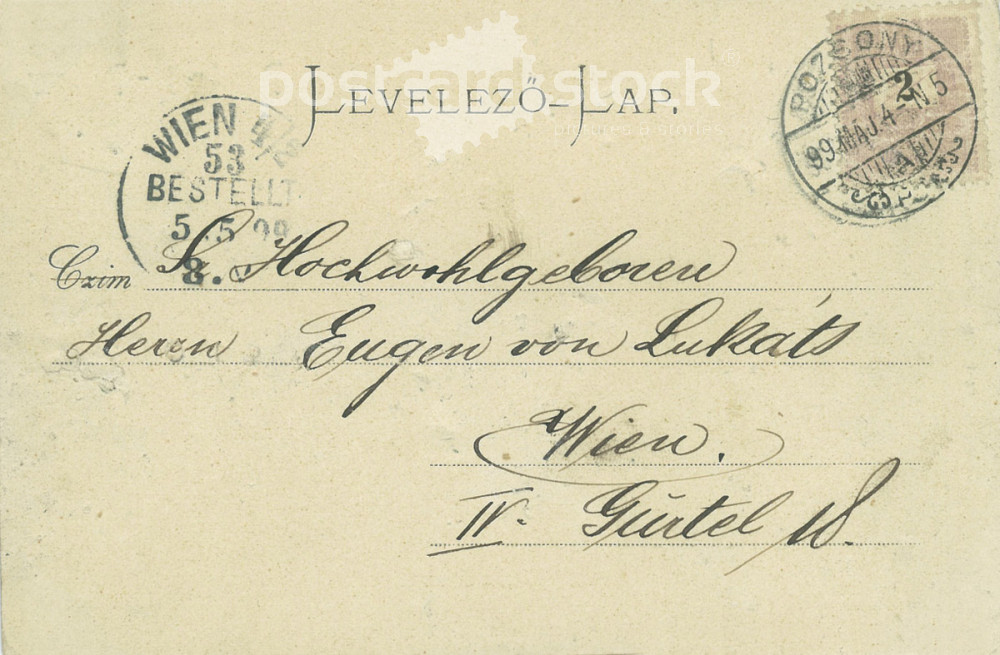 postcard stock
pictures & stories
LEVELEZŐ-LAP.
POZSONY
2
99 MÁJ 4-N 5
WIEN 4/2
53
BESTELLT
5.5 99
8. V
Czim Sr. Hochwohlgeboren
Herrn Eugen von Lukáts
Wien.
IV. Gürtel 18.